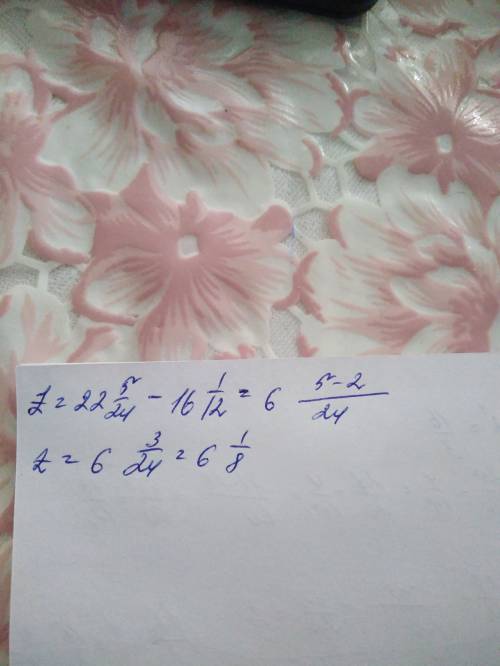 Z = 22 5/24 - 16 1/12 = 6 (5-2)/24
Z = 6 3/24 = 6 1/8